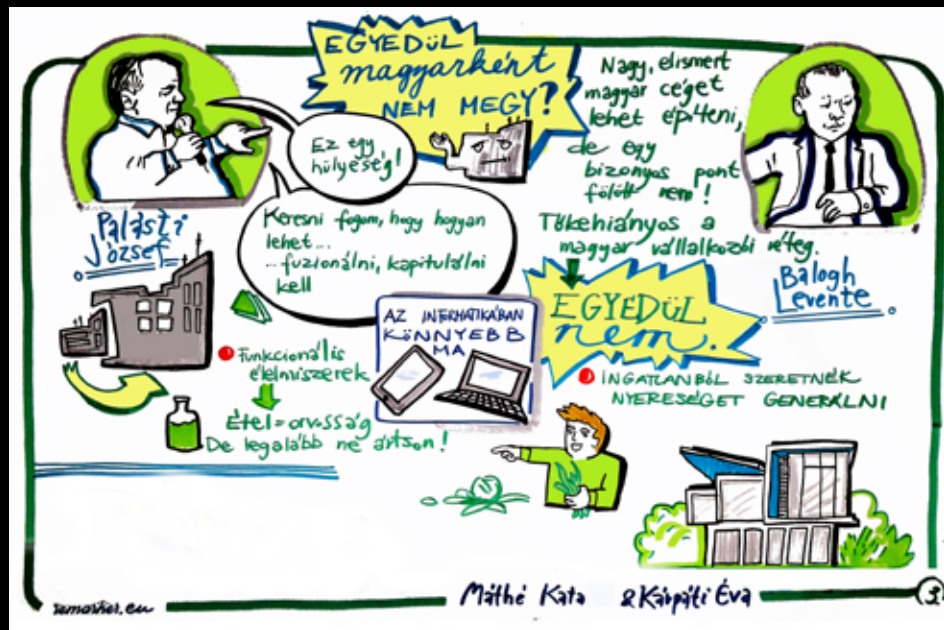 EGYEDÜL
magyarként
NEM MEGY?
Ez egy
hülyeség!
Keresni fogom, hogy hogyan
lehet...
... fuzionálni, kapitulálni
kell
Palásti
József
Nagy, elismert
magyar céget
lehet építeni,
de egy
bizonyos pont
fölött nem!
Tőkehiányos a
magyar vállalkozói réteg.
Balogh
Levente
EGYEDÜL
nem.
AZ INFORMATIKÁBAN
KÖNNYEBB
MA
Funkcionális
élelmiszerek
Étel = orvosság
De legalább ne ártson!
INGATLANBÓL SZERETNÉK
NYERESÉGET GENERÁLNI
Máthé Kata & Kárpáti Éva
3.